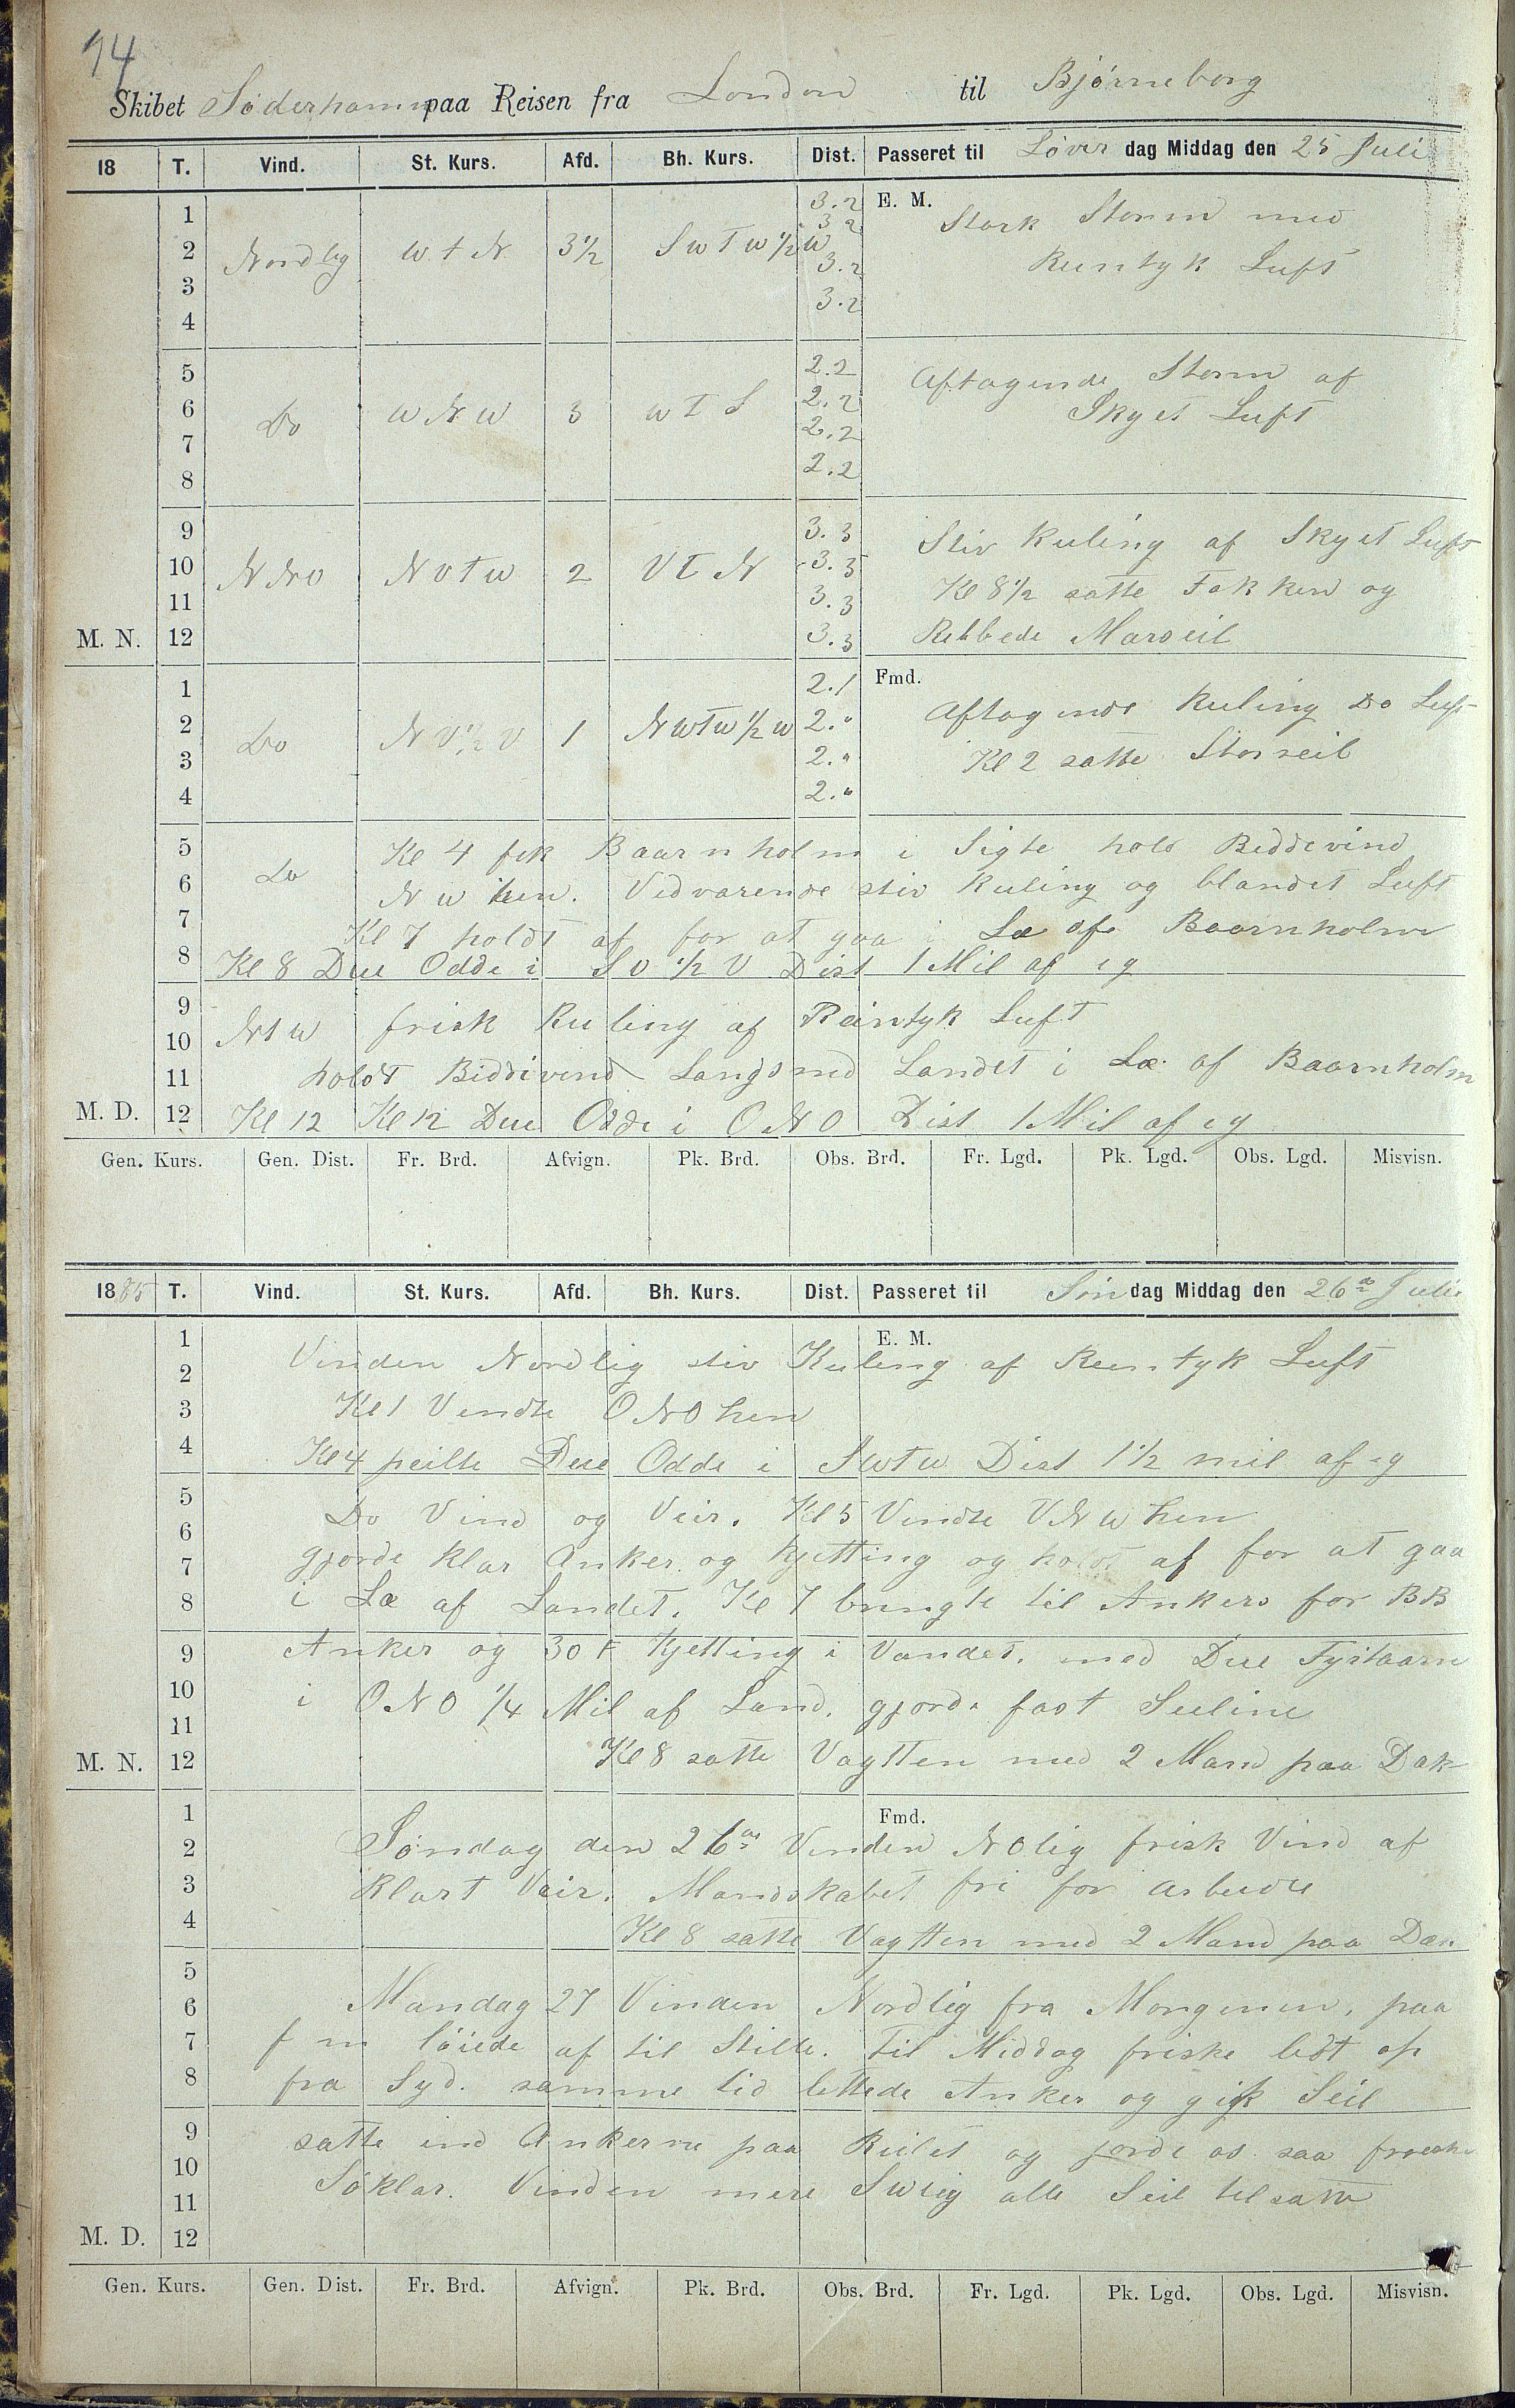 94
Skibet Söderhamn paa Reisen fra London til Bjørneborg
18 T. Vind. St. Kurs. Afd. Bh. Kurs. Dist. Passeret til Løver dag Middag den 25 Juli
1 3.2 E. M. Stærk Storm med
2 Nordlig W t N 3½ S W T W ½ W 3.2 Rientyk Luft
3 3.2
4 3.2
5 2.2 Aftagende Storm af
6 Do W N W 3 W T S 2.2 Skyet Luft
7 2.2
8 2.2
9 3.3 Stiv Kuling af Skyet Luft
10 N N O N V T W 2 V T N 3.3 Kl 8½ satte Fokken og
11 3.3
M. N. 12 3.3 Rebbede Marseil
1 2.1 Fmd. Aftagende Kuling Do Luft
2 Do N V ½ V 1 N W T W ½ W 2."
3 2." Kl 2 satte Storseil
4 2."
5 Kl 4 fik Baarnholm i Sigte holdt Biddevind
6 Do N W hen. Vedvarende stiv Kuling og blandet Luft
7 Kl 7 holdt af for at gaa i Læ af Baarnholm
8 Kl 8 Due Odde i S O ½ V Dist 1 Mil af eg
9
10 N t W frisk Kuling af Reintyk Luft
11 holdt Biddivind Langs med Landet i Læ af Baarnholm
M. D. 12 Kl 12 Kl 12 Due Odde i O N O Dist 1 Mil af eg
Gen. Kurs. Gen. Dist. Fr. Brd. Afvign. Pk. Brd. Obs. Brd. Fr. Lgd. Pk. Lgd. Obs. Lgd. Misvisn.
1885 T. Vind. St. Kurs. Afd. Bh. Kurs. Dist. Passeret til Søn dag Middag den 26de Juli
1 E. M.
2 Vinden Nordlig stiv Kuling af Reintyk Luft
3 Kl 1 Vendte O N O hen
4 Kl 4 peilte Due Odde i S W T W Dist 1½ mil af eg
5
6 Do Vind og Veir. Kl 5 Vendte V N W hen
7 gjorde klar Anker og Kjetting og holdt af for at gaa
8 i Læ af Landet. Kl 7 bragte til Ankers for BB
9 Anker og 30 F Kjetting i Vandet. med Due Fyrtaarn
10 i O N O ¼ Mil af Land. gjorde fast Seilene
11
M. N. 12 Kl 8 satte Vagtten med 2 Mand paa Dæk
1 Fmd.
2 Søndag den 26de Vinden N O lig frisk Vind af
3 Klart Veir. Mandskabet fri for Arbeide
4 Kl 8 satte Vagtten med 2 Mand paa Dæk
5
6 Mandag 27 Vinden Nordlig fra Morgenen, paa
7 f m løiede af til Stille. til Middag friske lidt op
8 fra Syd. samme tid lettede Anker og gik Seil
9 satte ind Ankerne paa Reilet og jorde os saa
10 Søklar. Vinden mere S W lig alle Seil tilsatte
11
M. D. 12
Gen. Kurs. Gen. Dist. Fr. Brd. Afvign. Pk. Brd. Obs. Brd. Fr. Lgd. Pk. Lgd. Obs. Lgd. Misvisn.